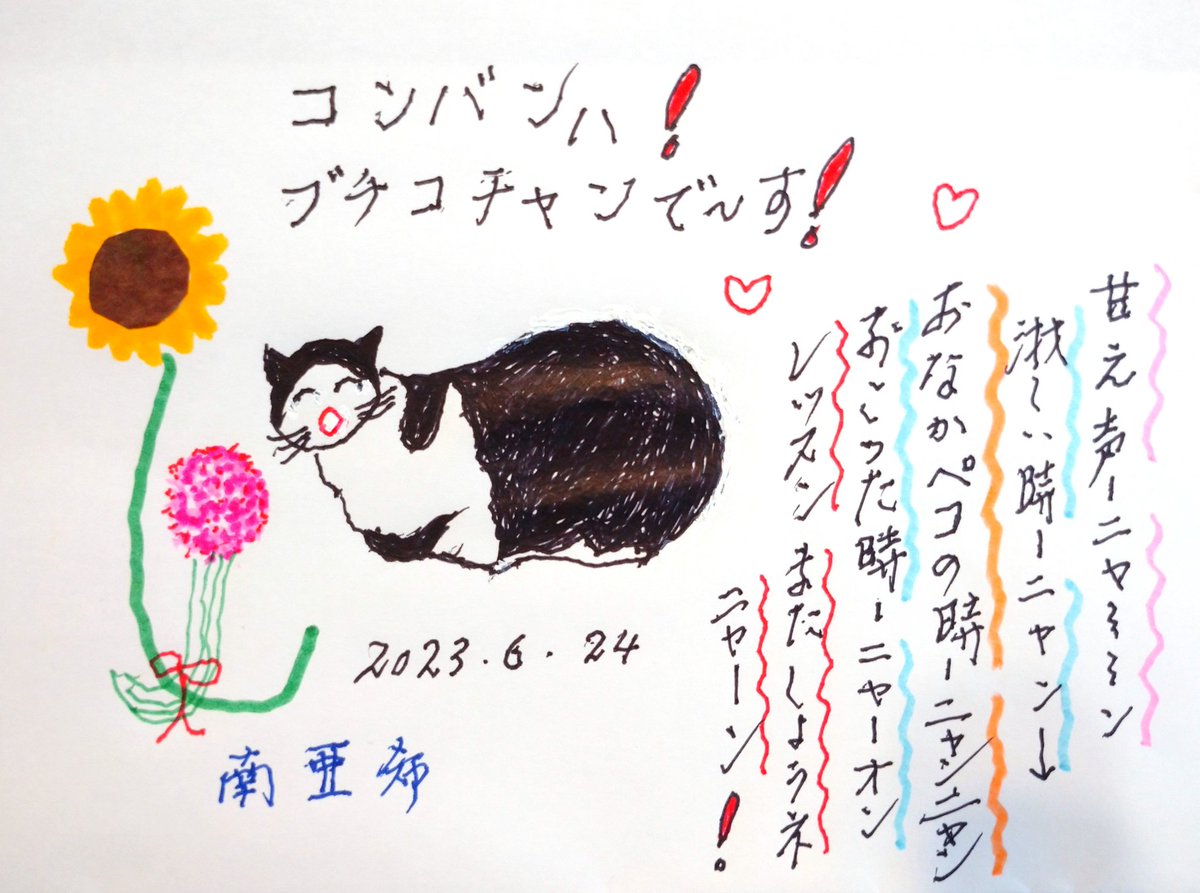 コンバンハ!
ブチコチャンで〜す!
甘え声ーニャミミミン
淋しい時ーニャン↓
おなかペコの時ーニャンニャン
おこった時ーニャーオン
レッスン またしようネ
ニャーン!
2023.6.24
南亜希